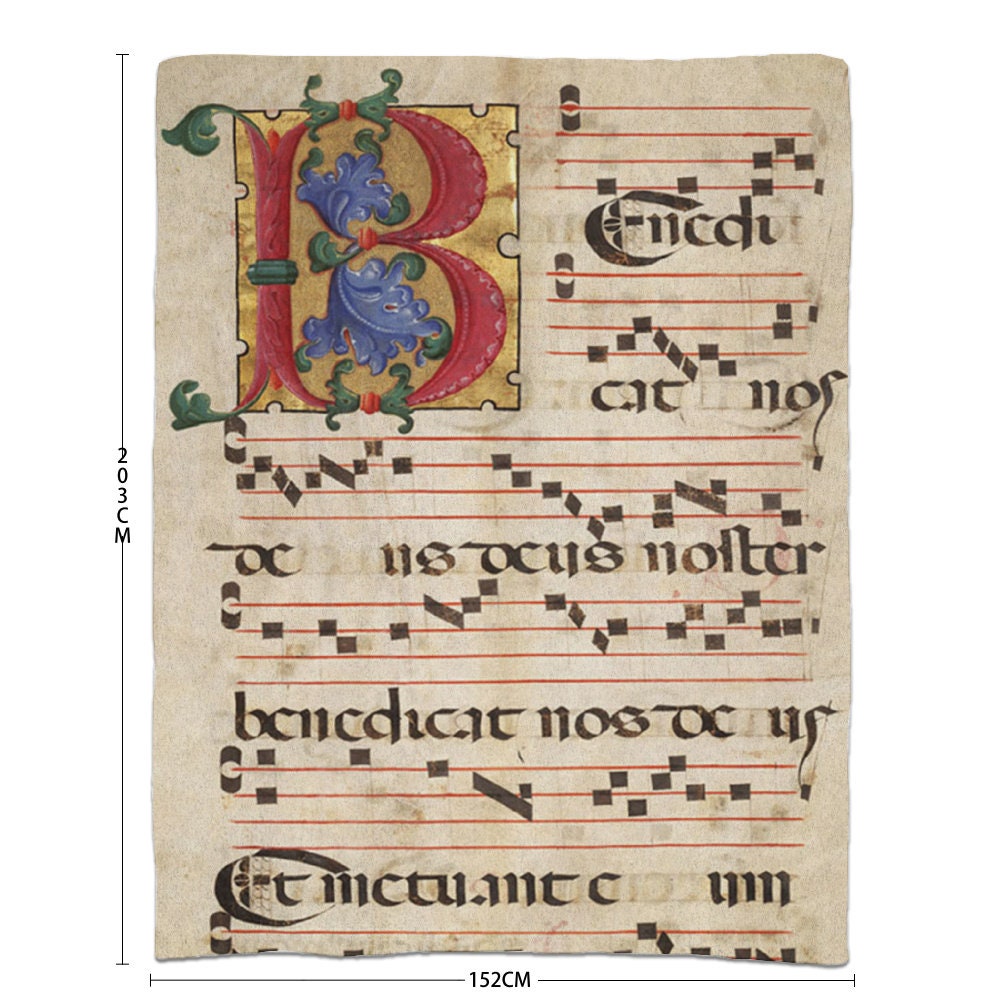 BEnedi
cat noſ
de us deus noſter
benedicat nos de uſ
Et metuant e um
203CM
152CM